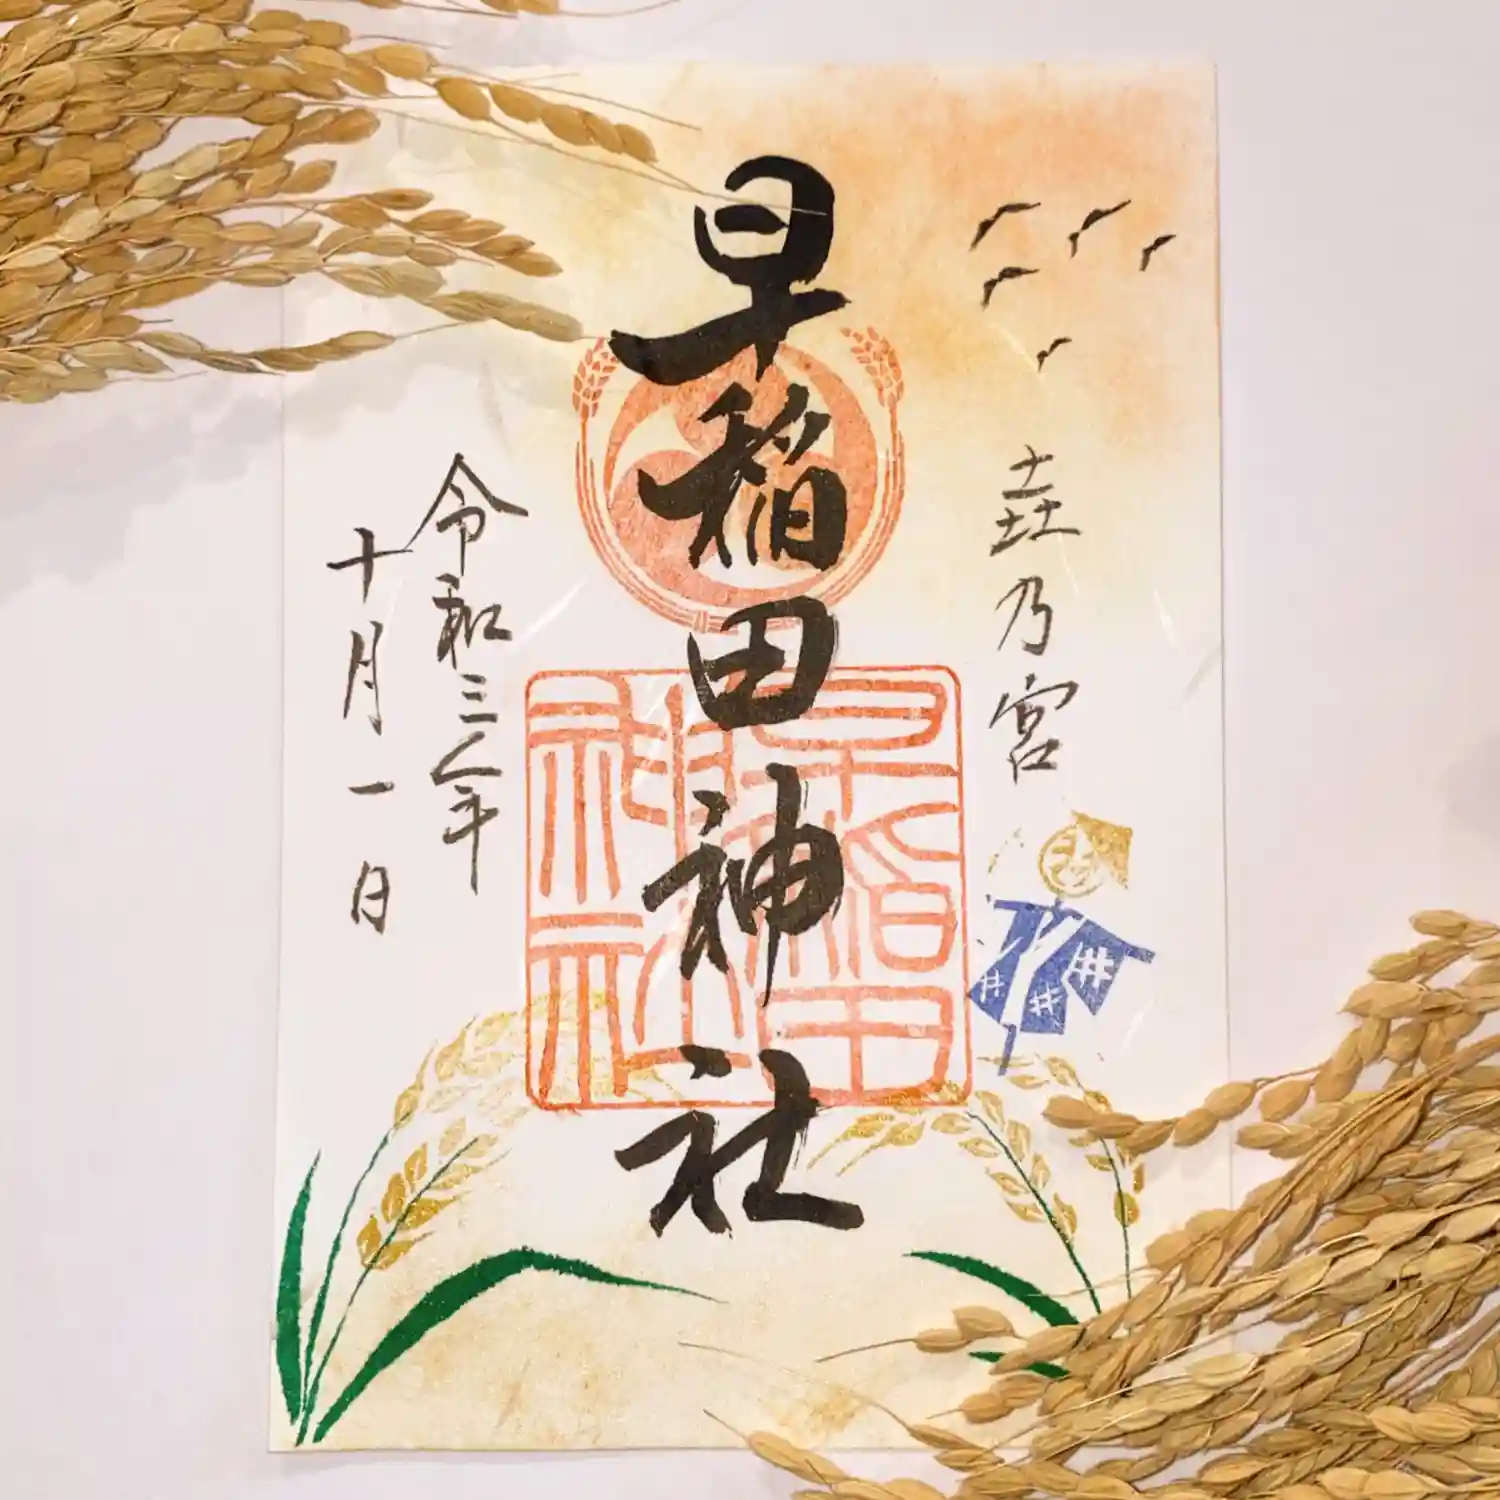 乃宮
井
井
井
早稲田神社
早稲田
神社
令和三年
十月一日